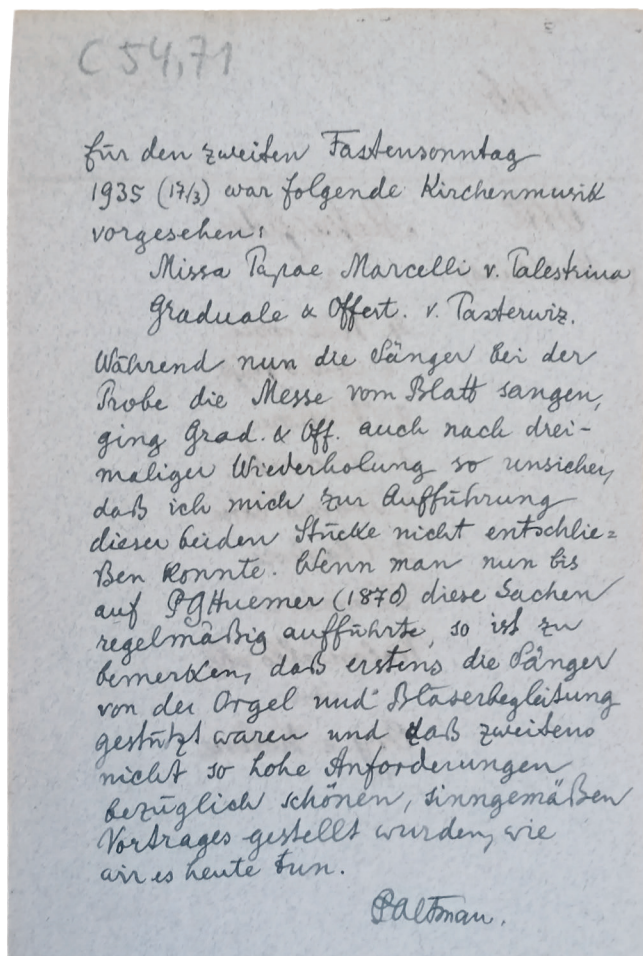 C 54,71
für den zweiten Fastensonntag
1935 (17/3) war folgende Kirchenmusik
vorgesehen:
Missa Papae Marcelli v. Palestrina
Graduale & Offert. v. Pasterwiz.
Während nun die Sänger bei der
Probe die Messe vom Blatt sangen,
ging Grad. & Off. auch nach drei-
maliger Wiederholung so unsicher,
daß ich mich zur Aufführung
dieser beiden Stücke nicht entschlie=
ßen konnte. Wenn man nun bis
auf PGHuemer (1876) diese Sachen
regelmäßig aufführte, so ist zu
bemerken, daß erstens die Sänger
von der Orgel und Bläserbegleitung
gestützt waren und daß zweitens
nicht so hohe Anforderungen
bezüglich schönen, sinngemäßen
Vortrages gestellt wurden, wie
wir es heute tun.
PAltman.